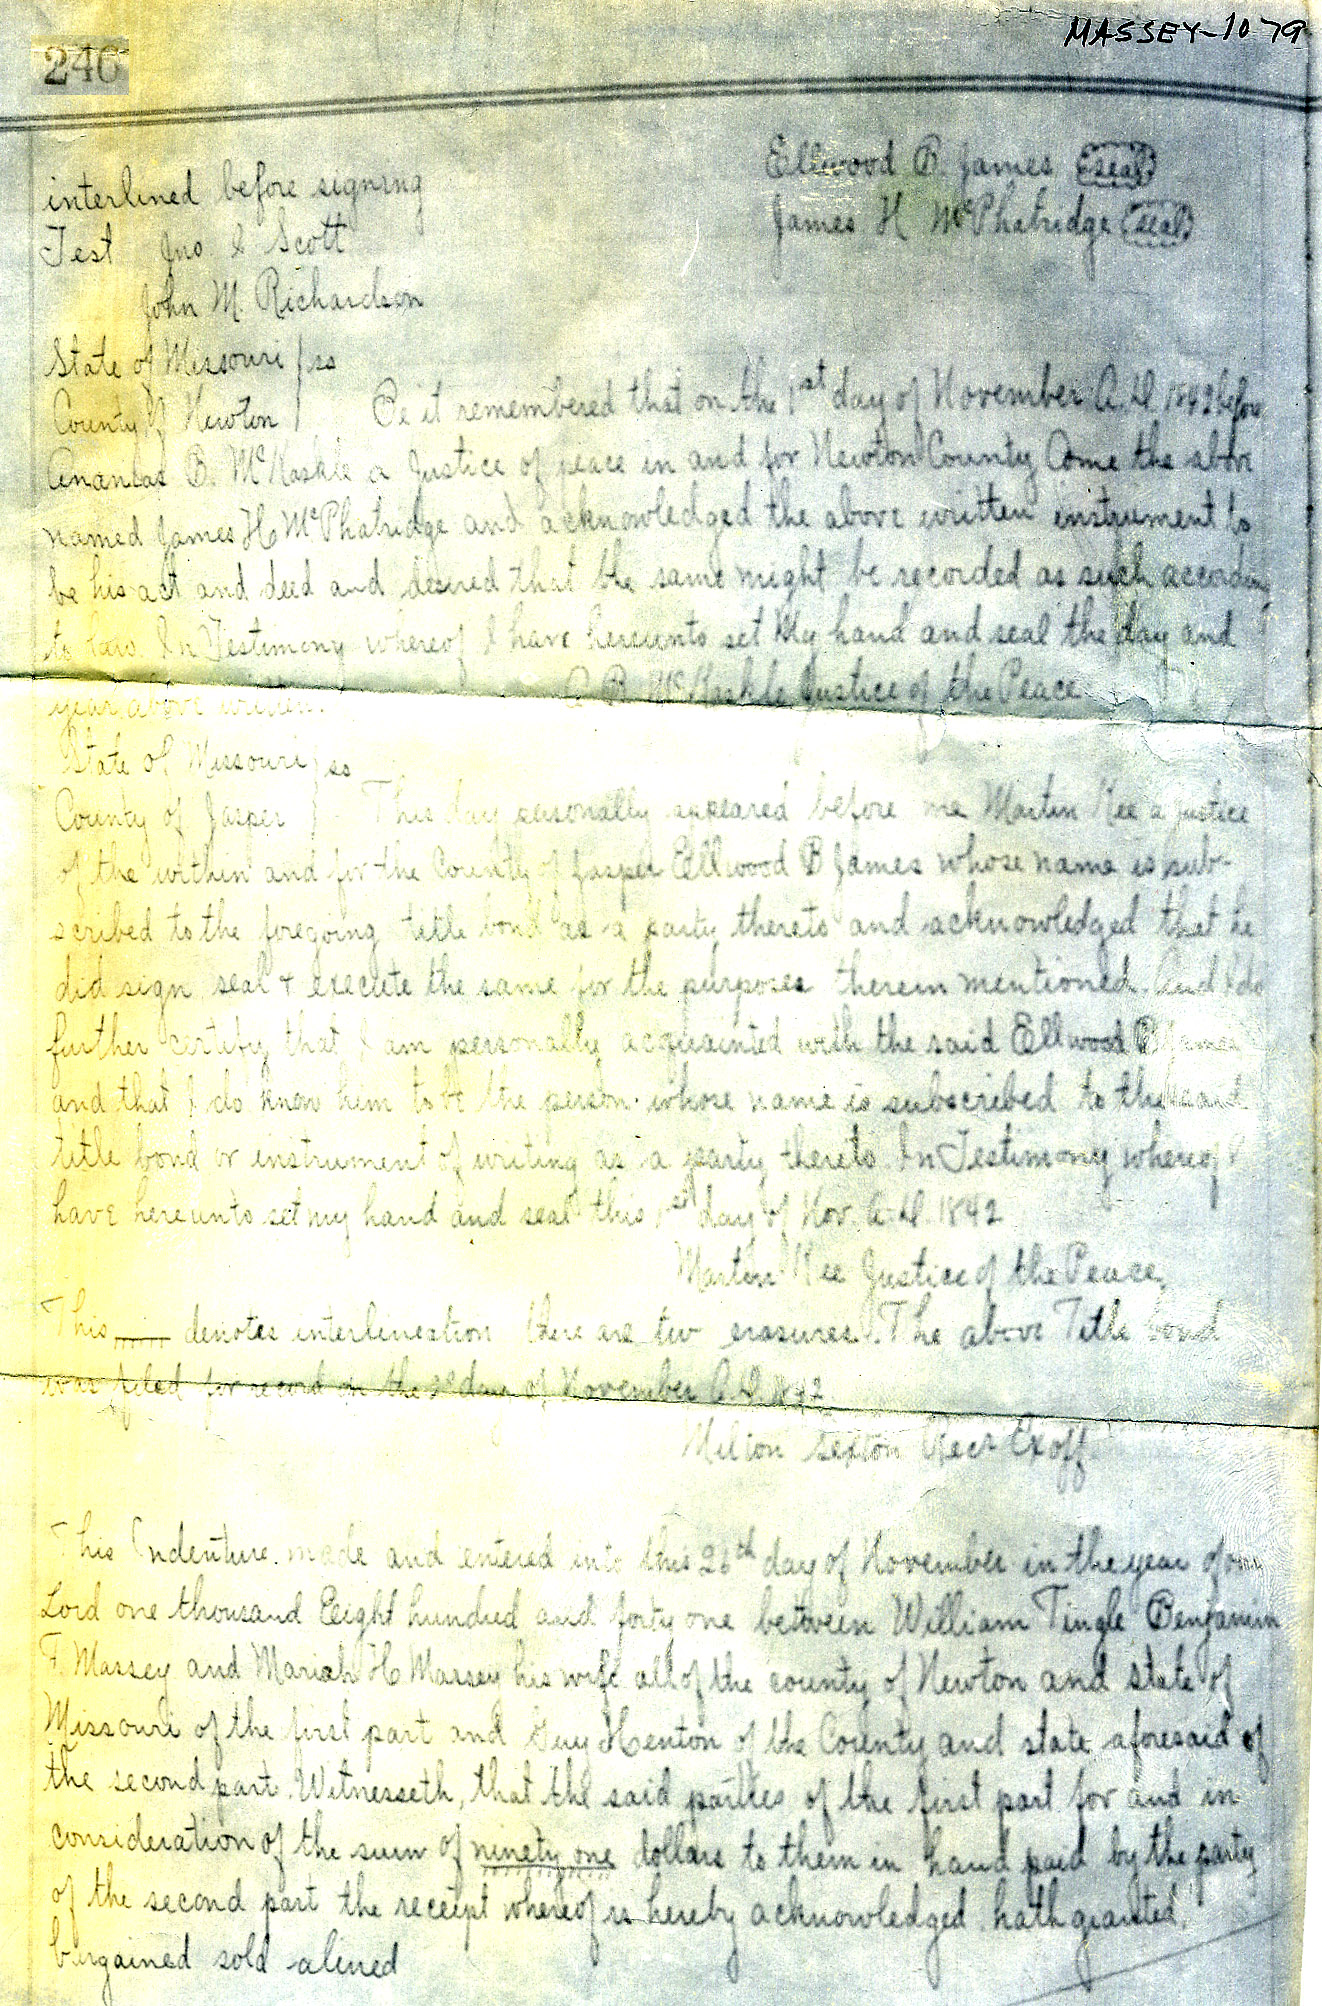 MASSEY-1079
246
Ellwood B. James (seal)
interlined before signing
James H McPhatridge (seal)
Test Jno. I Scott
John M. Richardson
State of Missouri } ss
County of Newton } Be it remembered that on the 1st day of November A.D. 1842 before
Ananias B. McKaskle a Justice of peace in and for Newton County Come the above
named James H McPhatridge and acknowledged the above written instrument to
be his act and deed and desired that the same might be recorded as such according
to law. In Testimony whereof I have hereunto set My hand and seal the day and
year above written. A B. McKaskle Justice of the Peace
State of Missouri } ss
County of Jasper } This day personally appeared before me Martin Kee a Justice
of the within and for the County of Jasper Ellwood B James whose name is sub-
scribed to the foregoing title bond as a party thereto and acknowledged that he
did sign seal & execute the same for the purposes therein mentioned. And I do
further certify that I am personally acquainted with the said Ellwood B James
and that I do know him to be the person whose name is subscribed to the said
title bond or instrument of writing as a party thereto. In Testimony whereof I
have hereunto set my hand and seal this 1st day of Nov. A.D. 1842
Martin Kee Justice of the Peace
This denotes interlineation there are two erasures. The above Title bond
was filed for record on the day of November A.D. 1842
Milton Sexton Recr Exoff
This Indenture made and entered into this 26th day of November in the year of our
Lord one thousand Eight hundred and forty one between William Tingle Benjamin
F. Massey and Mariah H Massey his wife all of the county of Newton and state of
Missouri of the first part and Guy Henton of the County and state aforesaid of
the second part. Witnesseth, that the said parties of the first part for and in
consideration of the sum of ninety one dollars to them in hand paid by the party
of the second part the receipt whereof is hereby acknowledged, hath granted,
bargained sold aliened